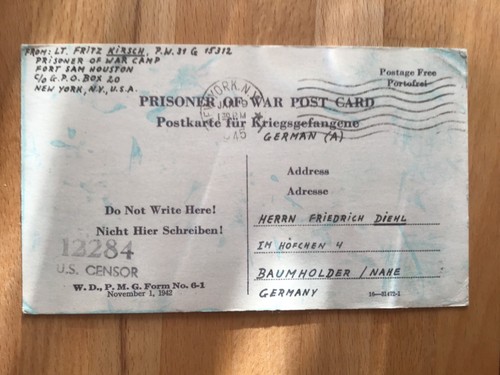 FROM: LT. FRITZ KIRSCH, P.W. 31 G 15312
PRISONER OF WAR CAMP
FORT SAM HOUSTON
C/O G.P.O. BOX 20
NEW YORK, N.Y., U.S.A.
NEW YORK, N.Y.
1945
Postage Free
Portofrei
PRISONER OF WAR POST CARD
Postkarte für Kriegsgefangene
GERMAN (A)
Address
Adresse
Do Not Write Here!
Nicht Hier Schreiben!
12284
U.S. CENSOR
W. D., P. M. G. Form No. 6-1
November 1, 1942
HERRN FRIEDRICH DIEHL
IM HÖFCHEN 4
BAUMHOLDER / NAHE
GERMANY